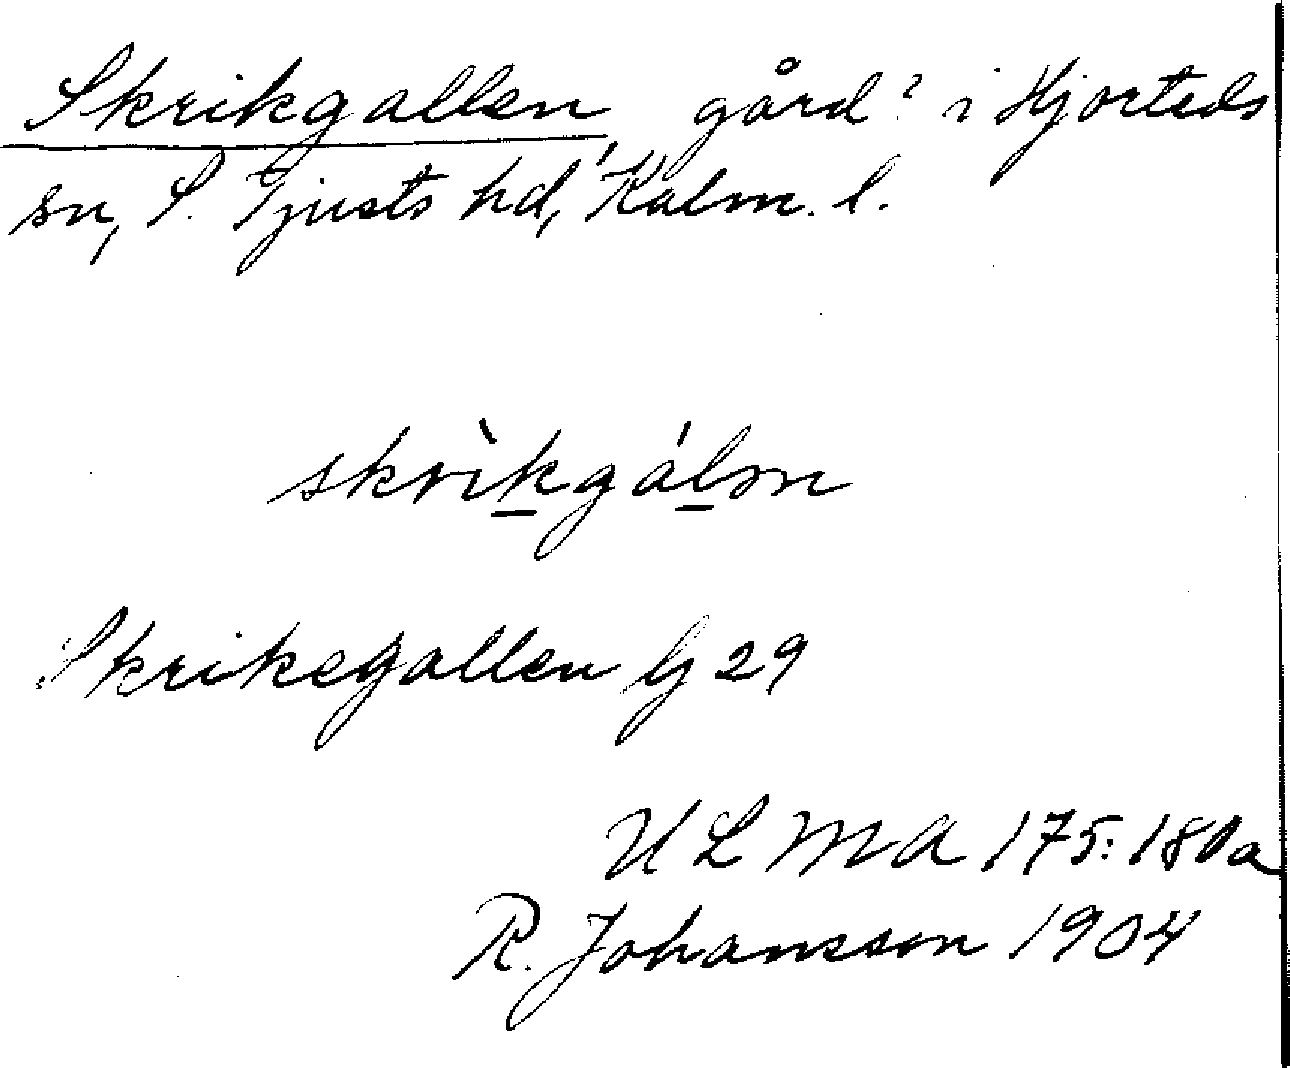 Skrikgallen, gård? i Hjorteds
sn, S. Tjusts hd, Kalm. l.
skrìkgálən
Skrikegallen Gj 29
ULMA 175:180a
R. Johansson 1904